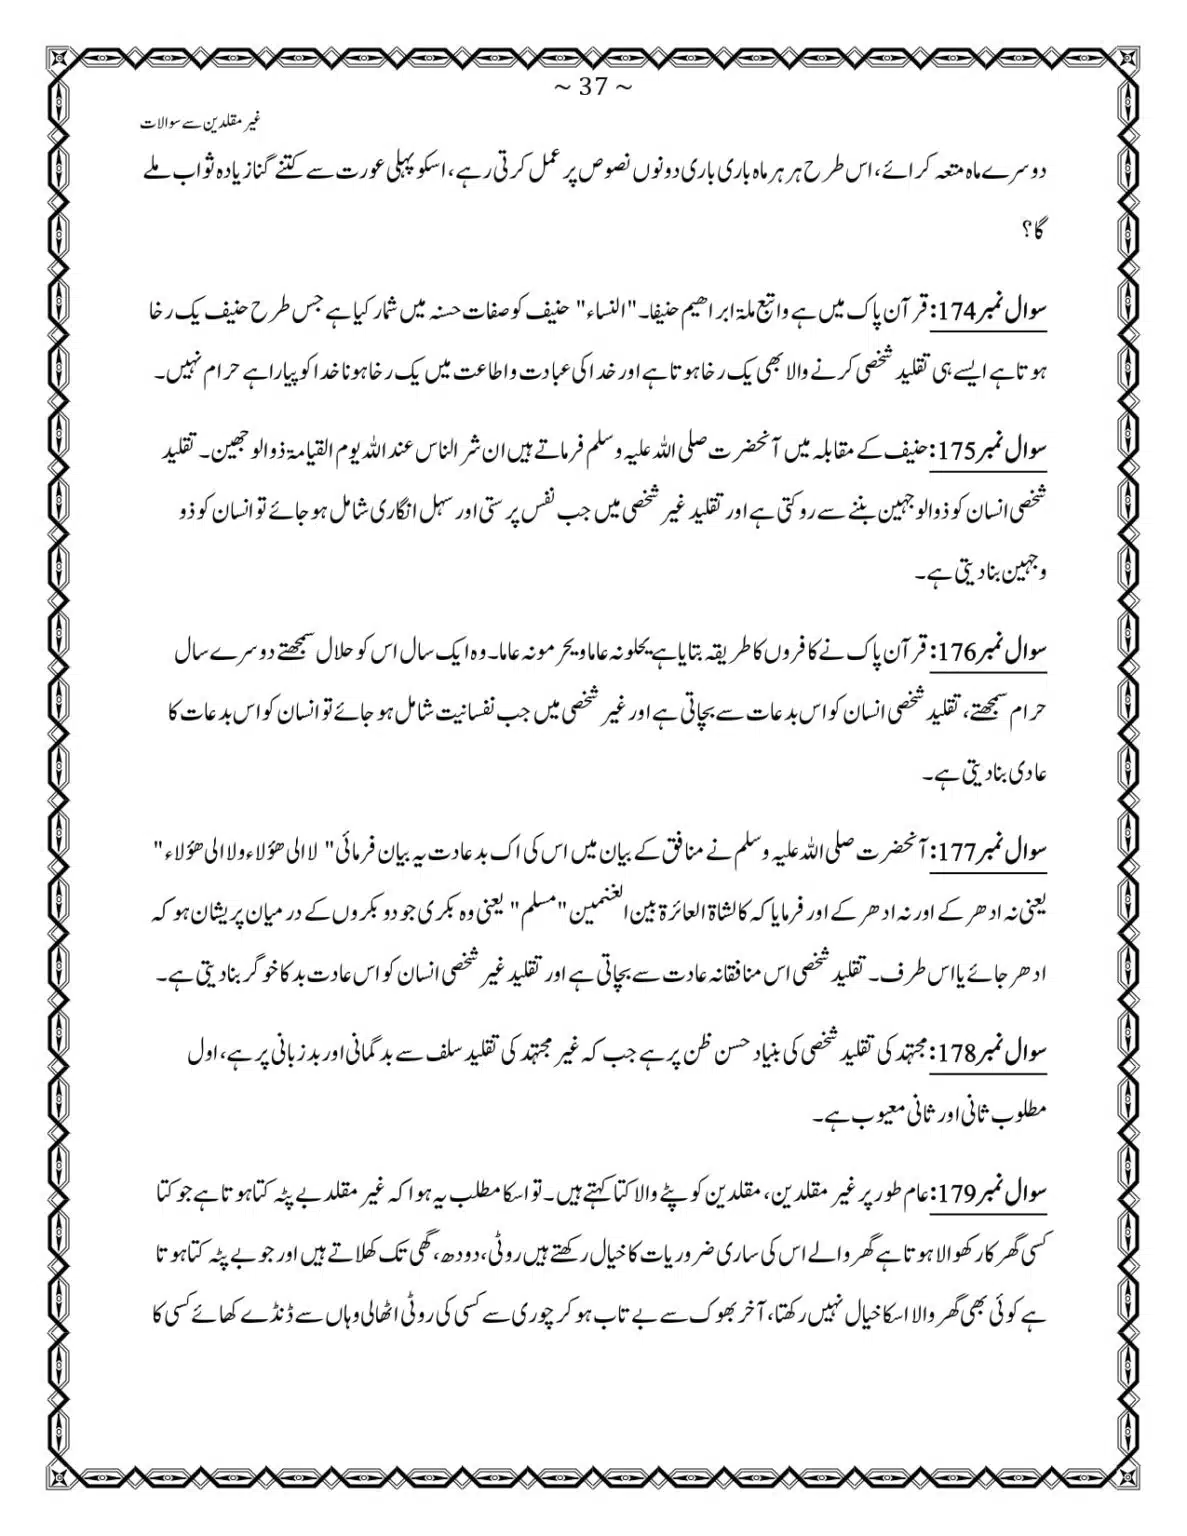 ~ 37 ~
غیر مقلدین سے سوالات
دوسرے ماہ متعہ کرائے، اس طرح ہر ہر ماہ باری باری دونوں نصوص پر عمل کرتی رہے، اسکو پہلی عورت سے کتنے گنا زیادہ ثواب ملے
گا؟
سوال نمبر174: قرآن پاک میں ہے واتبع ملۃ ابراھیم حنیفا۔"النساء" حنیف کو صفات حسنہ میں شمار کیا ہے جس طرح حنیف یک رخا
ہوتا ہے ایسے ہی تقلید شخصی کرنے والا بھی یک رخا ہوتا ہے اور خدا کی عبادت و اطاعت میں یک رخا ہونا خدا کو پیارا ہے حرام نہیں۔
سوال نمبر175: حنیف کے مقابلہ میں آنحضرت صلی اللہ علیہ وسلم فرماتے ہیں ان شر الناس عند اللہ یوم القیامۃ ذوالوجھین۔ تقلید
شخصی انسان کو ذوالوجہین بننے سے روکتی ہے اور تقلید غیر شخصی میں جب نفس پرستی اور سہل انگاری شامل ہو جائے تو انسان کو ذو
وجہین بنا دیتی ہے۔
سوال نمبر176: قرآن پاک نے کافروں کا طریقہ بتایا ہے یحلونہ عاما ویحرمونہ عاما۔ وہ ایک سال اس کو حلال سمجھتے دوسرے سال
حرام سمجھتے، تقلید شخصی انسان کو اس بد عات سے بچاتی ہے اور غیر شخصی میں جب نفسانیت شامل ہو جائے تو انسان کو اس بد عات کا
عادی بنا دیتی ہے۔
سوال نمبر177: آنحضرت صلی اللہ علیہ وسلم نے منافق کے بیان میں اس کی اک بد عادت یہ بیان فرمائی" لا الی ھؤلاء ولا الی ھؤلاء"
یعنی نہ ادھر کے اور نہ ادھر کے اور فرمایا کہ کالشاۃ العائرۃ بین الغنمین "مسلم" یعنی وہ بکری جو دو بکروں کے درمیان پریشان ہو کہ
ادھر جائے یا اس طرف۔ تقلید شخصی اس منافقانہ عادت سے بچاتی ہے اور تقلید غیر شخصی انسان کو اس عادت بد کا خوگر بنا دیتی ہے۔
سوال نمبر178: مجتہد کی تقلید شخصی کی بنیاد حسن ظن پر ہے جب کہ غیر مجتہد کی تقلید سلف سے بدگمانی اور بد زبانی پر ہے، اول
مطلوب ثانی اور ثانی معیوب ہے۔
سوال نمبر179: عام طور پر غیر مقلدین، مقلدین کو پٹے والا کتا کہتے ہیں۔ تو اسکا مطلب یہ ہوا کہ غیر مقلد بے پٹہ کتا ہوتا ہے جو کتا
کسی گھر کا رکھوالا ہوتا ہے گھر والے اس کی ساری ضروریات کا خیال رکھتے ہیں روٹی، دودھ، گھی تک کھلاتے ہیں اور جو بے پٹہ کتا ہوتا
ہے کوئی بھی گھر والا اسکا خیال نہیں رکھتا، آخر بھوک سے بے تاب ہو کر چوری سے کسی کی روٹی اٹھالی وہاں سے ڈنڈے کھائے کسی کا